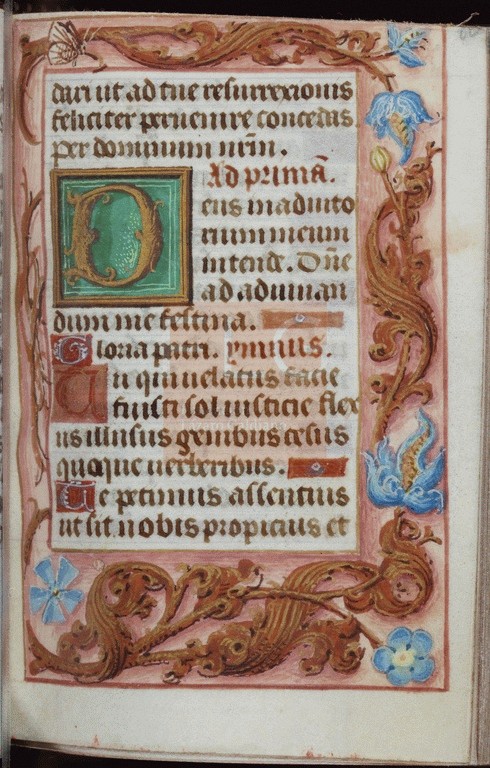 dari ut ad tue resurrexionis
feliciter peruenire concedas
per dominum nr̄m.
Ad primā.
Deus in adiuto
rium meum
intende. Dn̄e
ad adiuuan
dum me festina.
Gloria patri. ymnus.
Qui uelatus facie
fuisti sol iusticie flex
us illusus genibus cesus
quoque uerberibus.
Te petimus attentius
ut sit nobis propicius et